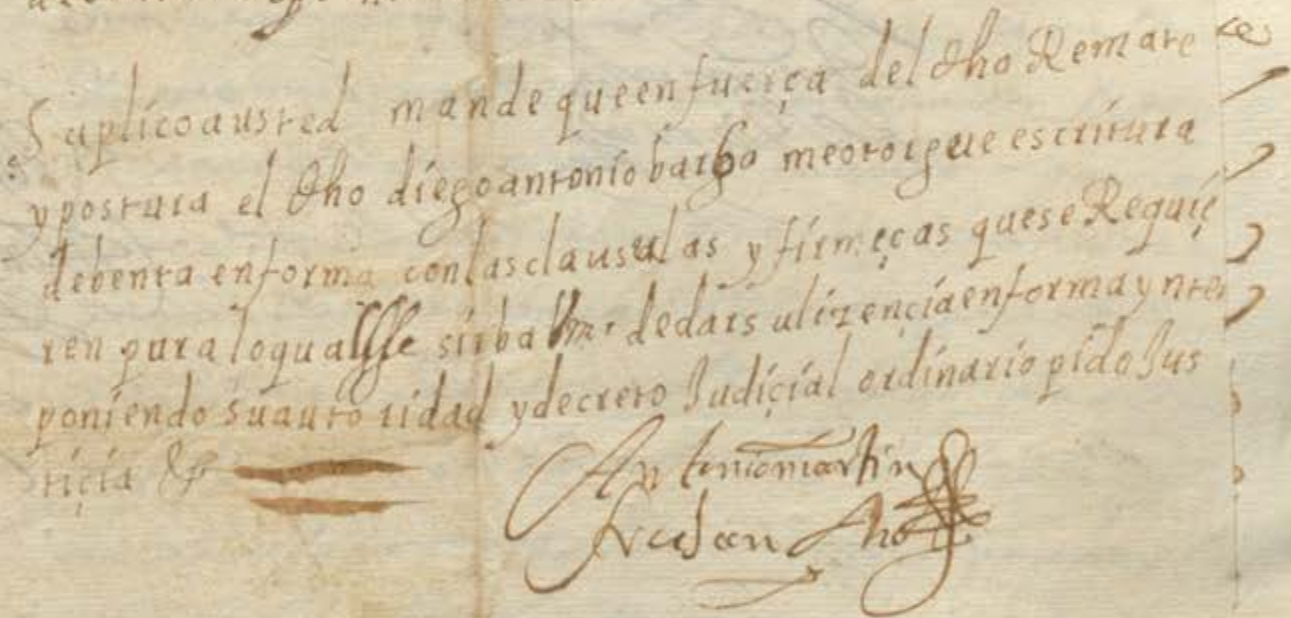 Suplico a usted mande que en fuerça del dho Remate
y postura el dho diego antonio barba me otorgue escritura
de benta en forma con las clausulas y firmeças que se Requie
ren para lo qual se sirba Vm. de dar su lizençia en forma ynter
poniendo su autoridad y decreto Judiçial ordinario pido Jus
tiçia &
Antonio martin